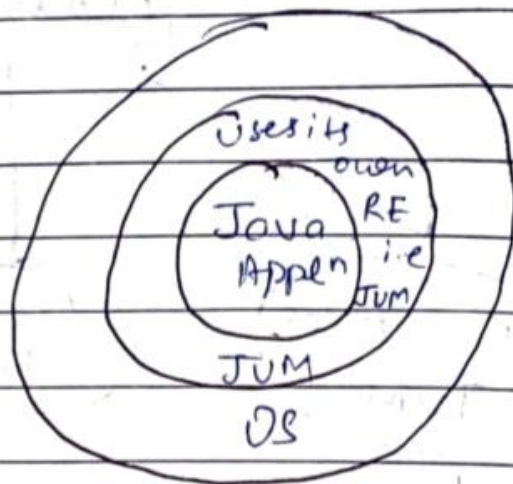 Uses its
own
RE
i.e
JVM
Java
Appln
JVM
OS